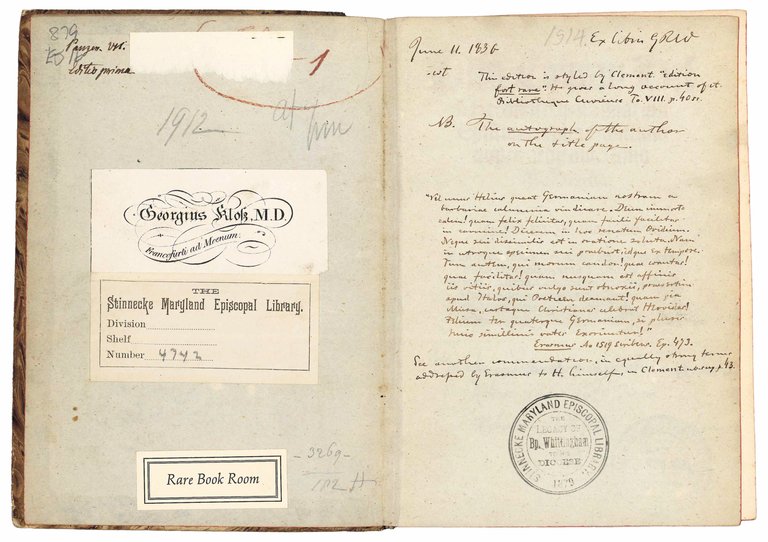 879
Panzer. VII.
Editio prima
1
1912
Georgius Kloß, M.D.
Francofurti ad Moenum.
THE
Stinnecke Maryland Episcopal Library.
Division
Shelf
Number 4742
Rare Book Room
- 3269 -
June 11. 1836
1914. Ex libris GRW
This edition is styled by Clement "edition
fort rare". He gives a long account of it.
Bibliotheque Curieuse To. VIII. p. 40
NB. The autograph of the author
on the title page.
"Vel unus Helius queat Germaniam nostram a
barbariae calumnia vindicare. Deum immorta
lem! quam felix felicitas, quam facilis facilitas
in carmine! Diceres in hoc renatum Ovidium.
Neque sui dissimilis est in oratione soluta. Nam
in utroque specimen sui praebuit, idque ex tempore.
Tum autem, qui morum candor! quae comitas!
quae facilitas! quam nusquam est affinis
iis vitiis, quibus vulgo sunt obnoxii, praesertim
apud Italos, qui Poeticen adamant! quam pia
Musa, castaque Christianas celebrat Heroidas!
Felicem ter quaterque Germaniam, si pluri
huic simillimi vates exoriantur!"
Erasmus Ao 1519 scribens. Ep. 473.
See another commendation, in equally strong terms
addressed by Erasmus to H. himself, in Clement. ub. sup. p. 43.
STINNECKE MARYLAND EPISCOPAL LIBRARY
THE
LEGACY OF
Bp. Whittingham
TO HIS
DIOCESE
1879